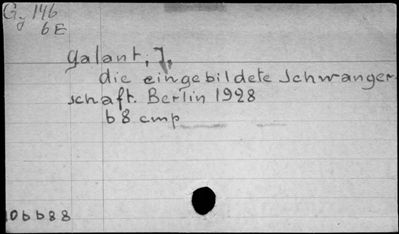 Gy 146
6E
Galant, J,
die eingebildete Schwanger-
schaft. Berlin 1928
68 cmp
10bb88